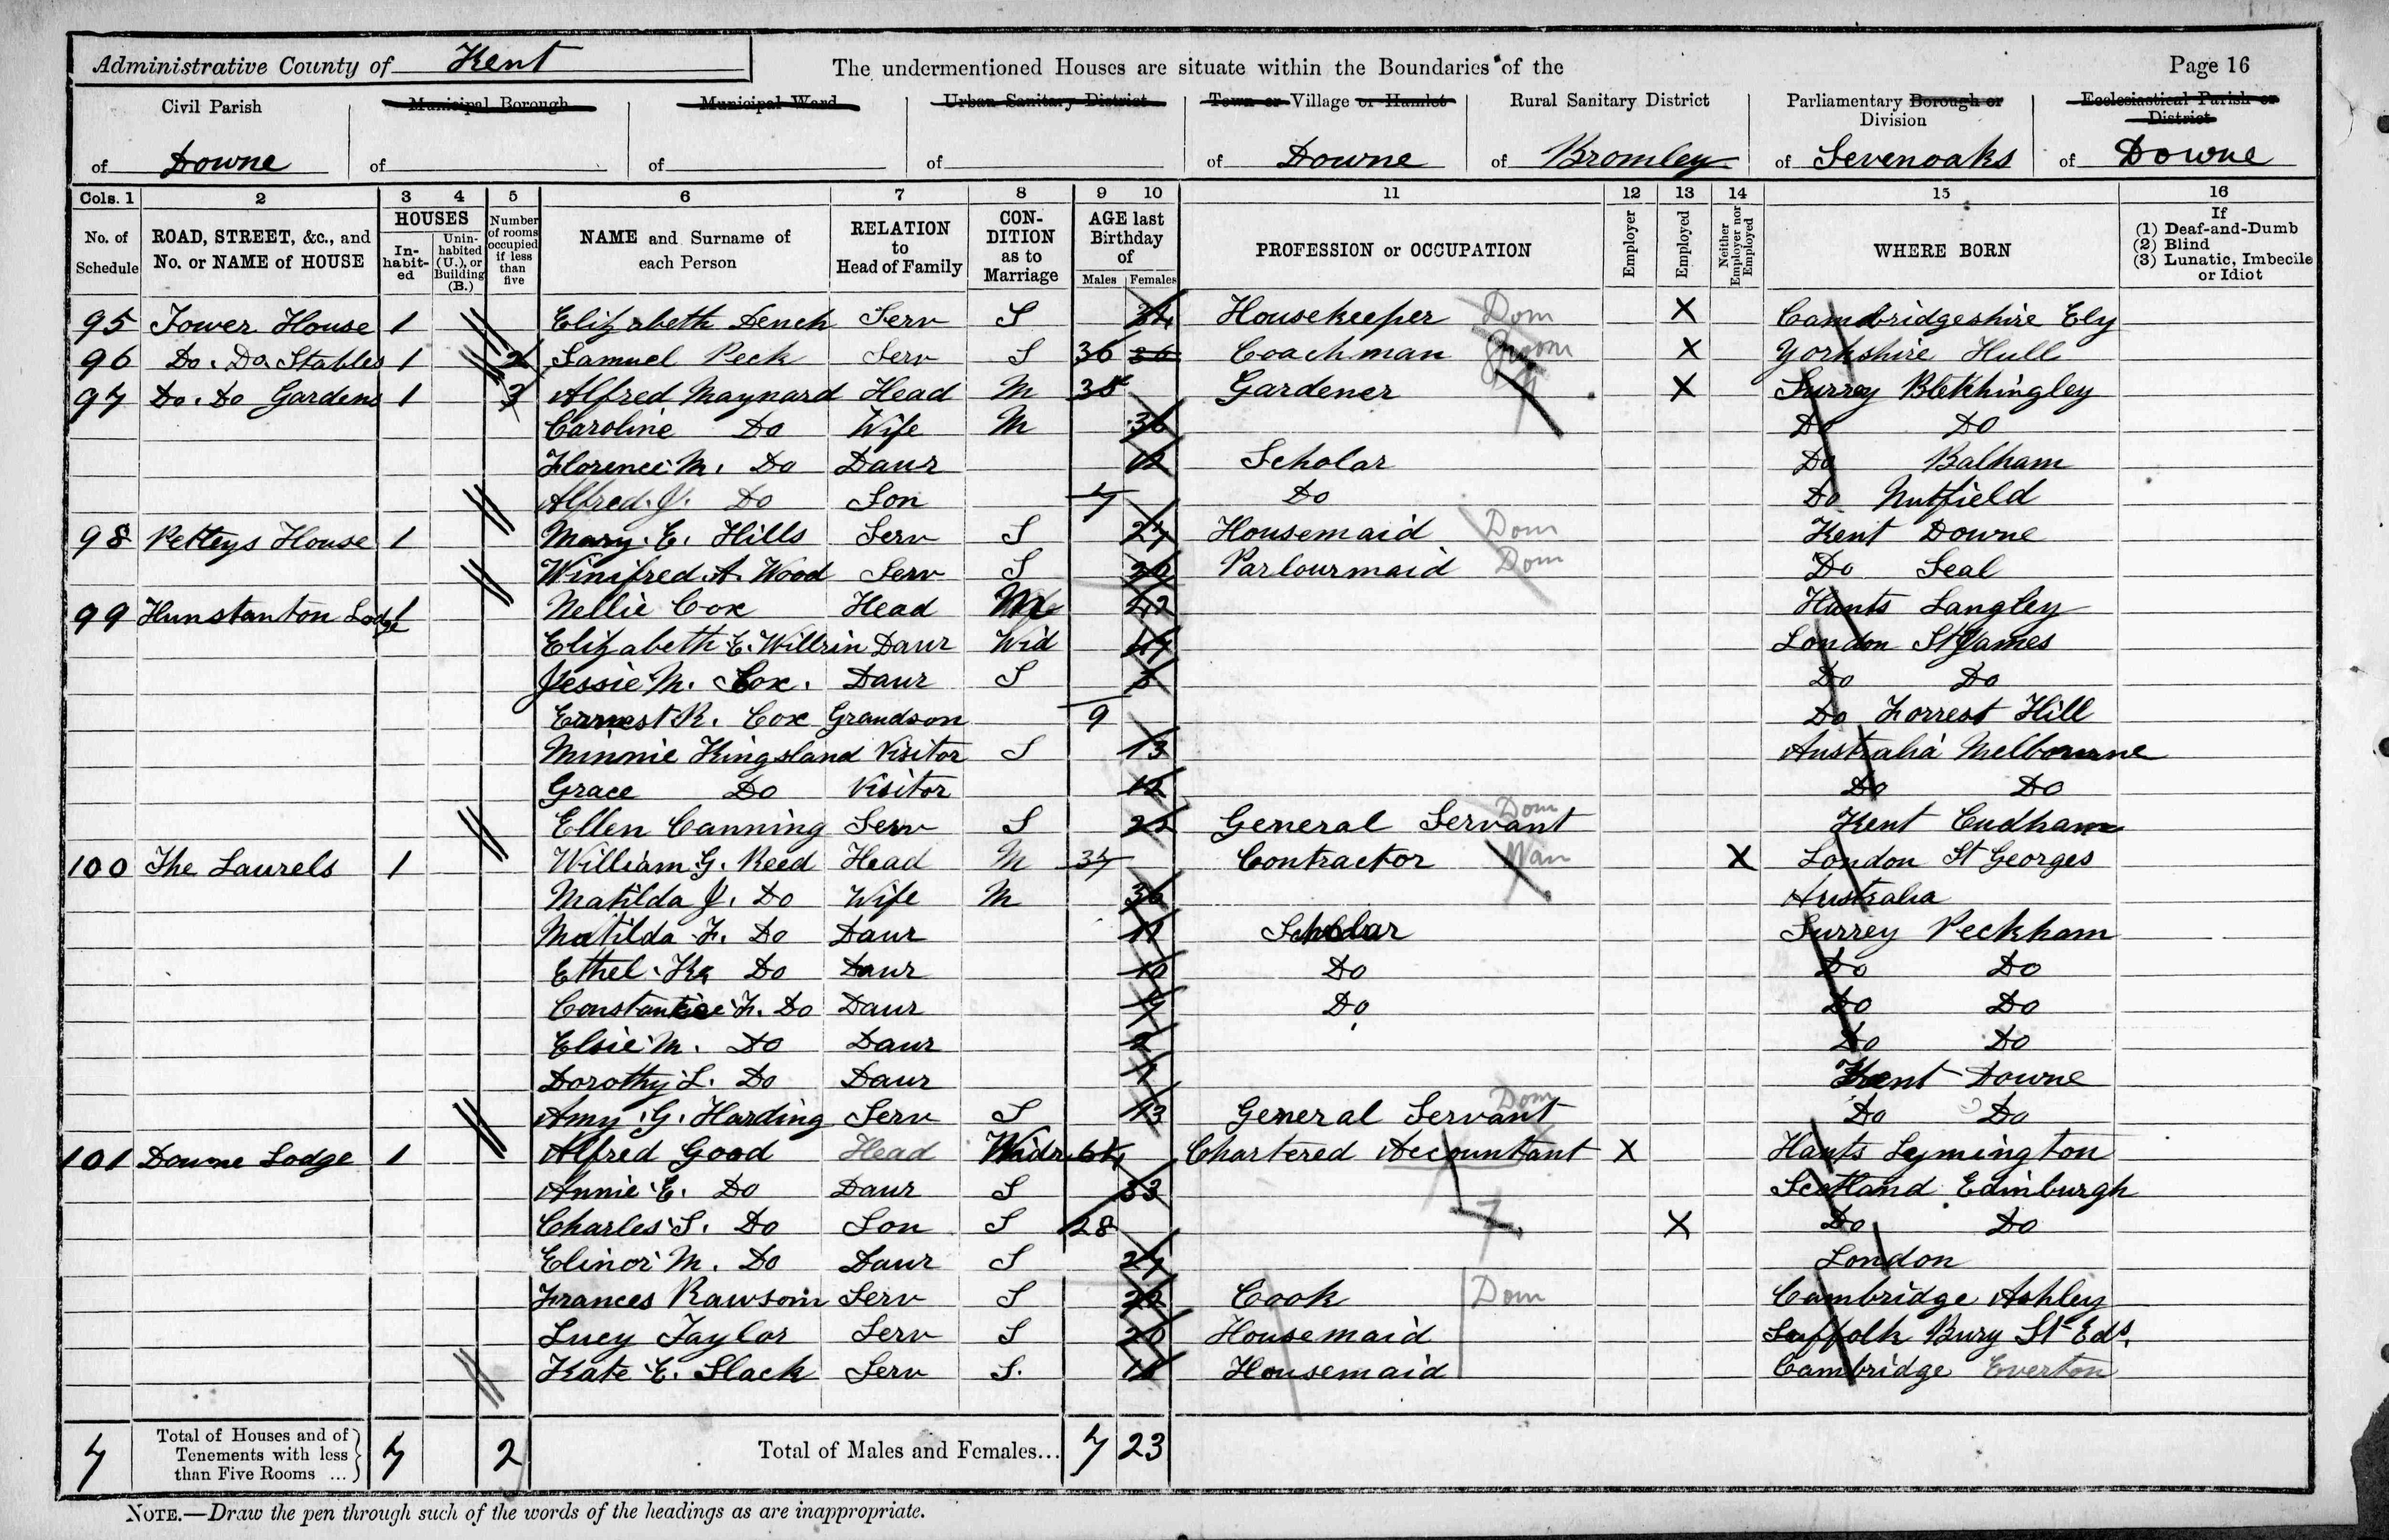 Administrative County of Kent The undermentioned Houses are situate within the Boundaries of the Page 16
Civil Parish Municipal Borough Municipal Ward Urban Sanitary District Town or Village or Hamlet Rural Sanitary District Parliamentary Borough or Division Ecclesiastical Parish or District
of Downe of of of of Downe of Bromley of Sevenoaks of Downe
Cols. 1 2 3 4 5 6 7 8 9 10 11 12 13 14 15 16
No. of Schedule ROAD, STREET, &c., and No. or NAME of HOUSE HOUSES Inhabited Uninhabited (U.), or Building (B.) Number of rooms occupied if less than five NAME and Surname of each Person RELATION to Head of Family CONDITION as to Marriage AGE last Birthday of Males Females PROFESSION or OCCUPATION Employer Employed Neither Employer nor Employed WHERE BORN If (1) Deaf-and-Dumb (2) Blind (3) Lunatic, Imbecile or Idiot
95 Tower House 1 Elizabeth Dench Serv S 34 Housekeeper Dom X Cambridgeshire Ely
96 Do. Do Stables 1 2 Samuel Peck Serv S 36 36 Coachman Groom X Yorkshire Hull
97 Do. Do Gardens 1 3 Alfred Maynard Head M 35 Gardener X Surrey Bletchingley
Caroline Do Wife M 36 Do Do
Florence M. Do Daur 12 Scholar Do Balham
Alfred. J. Do Son 7 Do Do Nutfield
98 Petleys House 1 Mary. E. Hills Serv S 27 Housemaid Dom Kent Downe
Winifred. A. Wood Serv S 20 Parlourmaid Dom Do Seal
99 Hunstanton Lodge 1 Nellie Cox Head M 42 Hants Langley
Elizabeth E. Daur Wid London St James
Jessie M. Cox. Daur S Do Do
Ernest R. Cox Grandson 9 Do Forrest Hill
Minnie Kingsland Visitor S 13 Australia Melbourne
Grace Do Visitor 12 Do Do
Ellen Canning Serv S 22 General Servant Dom Kent Cudham
100 The Laurels 1 William G. Reed Head M 37 Contractor X London St Georges
Matilda J. Do Wife M 36 Australia
Matilda F. Do Daur 11 Scholar Surrey Peckham
Ethel. K. Do Daur 10 Do Do Do
Constance F. Do Daur Do Do Do
Elsie M. Do Daur 2 Do Do
Dorothy L. Do Daur 1 Kent Downe
Amy. G. Harding Serv S 13 General Servant Dom Do Do
101 Downe Lodge 1 Alfred Good Head Widr 64 Chartered Accountant X Hants Lymington
Annie E. Do Daur S 33 Scotland Edinburgh
Charles S. Do Son S 28 X Do Do
Elinor M. Do Daur S 27 London
Frances Rawsoin Serv S 22 Cook Dom Cambridge Ashley
Lucy Taylor Serv S 20 Housemaid Suffolk Bury St Eds.
Kate E. Slack Serv S. 18 Housemaid Cambridge Everton
7 Total of Houses and of Tenements with less than Five Rooms ... 7 2 Total of Males and Females... 7 23
NOTE.—Draw the pen through such of the words of the headings as are inappropriate.